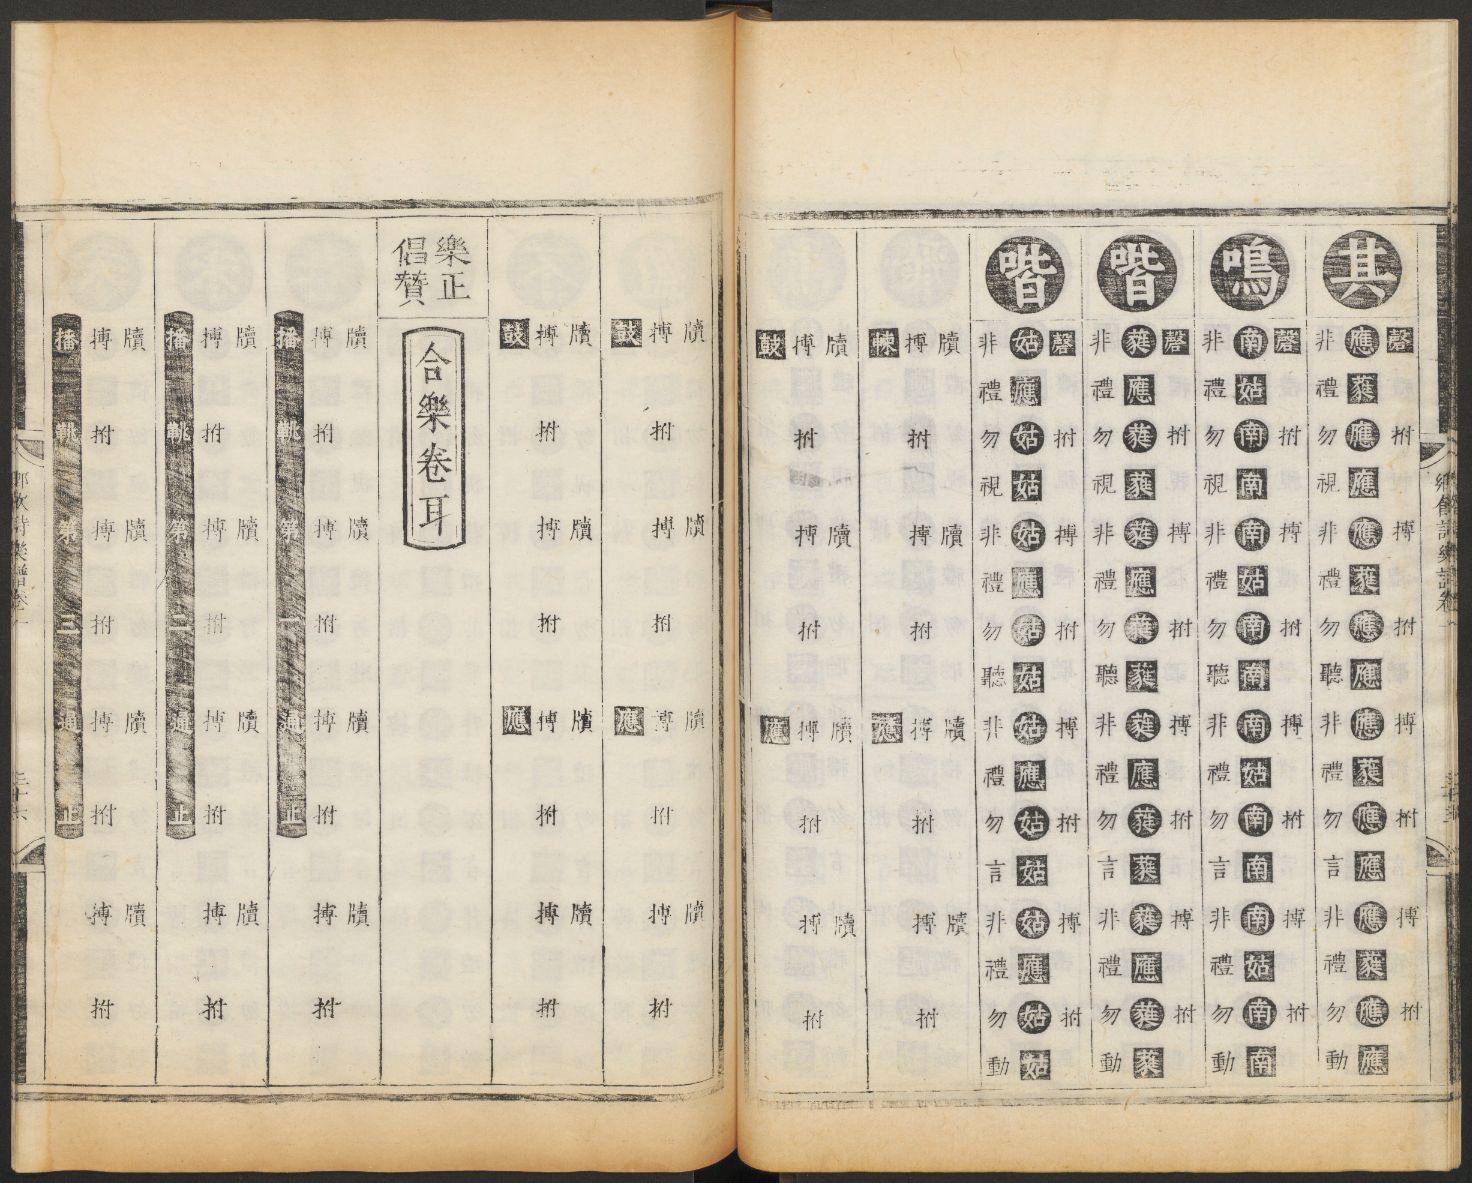 鄉飲詩樂譜卷一
其
磬拊搏拊搏拊搏拊
應蕤應應應蕤應應應蕤應應應蕤應應
非禮勿視非禮勿聽非禮勿言非禮勿動
鳴
磬拊搏拊搏拊搏拊
南姑南南南姑南南南姑南南南姑南南
非禮勿視非禮勿聽非禮勿言非禮勿動
喈
磬拊搏拊搏拊搏拊
蕤應蕤蕤蕤應蕤蕤蕤應蕤蕤蕤應蕤蕤
非禮勿視非禮勿聽非禮勿言非禮勿動
喈
磬拊搏拊搏拊搏拊
姑應姑姑姑應姑姑姑應姑姑姑應姑姑
非禮勿視非禮勿聽非禮勿言非禮勿動
牘牘牘牘
搏拊搏拊搏拊搏拊
朄應
牘牘牘牘
搏拊搏拊搏拊搏拊
鼓應
牘牘牘牘
搏拊搏拊搏拊搏拊
鼓應
牘牘牘牘
搏拊搏拊搏拊搏拊
鼓應
樂正
倡贊
合樂卷耳
牘牘牘牘
搏拊搏拊搏拊搏拊
播鞉第一通止
牘牘牘牘
搏拊搏拊搏拊搏拊
播鞉第二通止
牘牘牘牘
搏拊搏拊搏拊搏拊
播鞉第三通止
鄉飲詩樂譜卷一